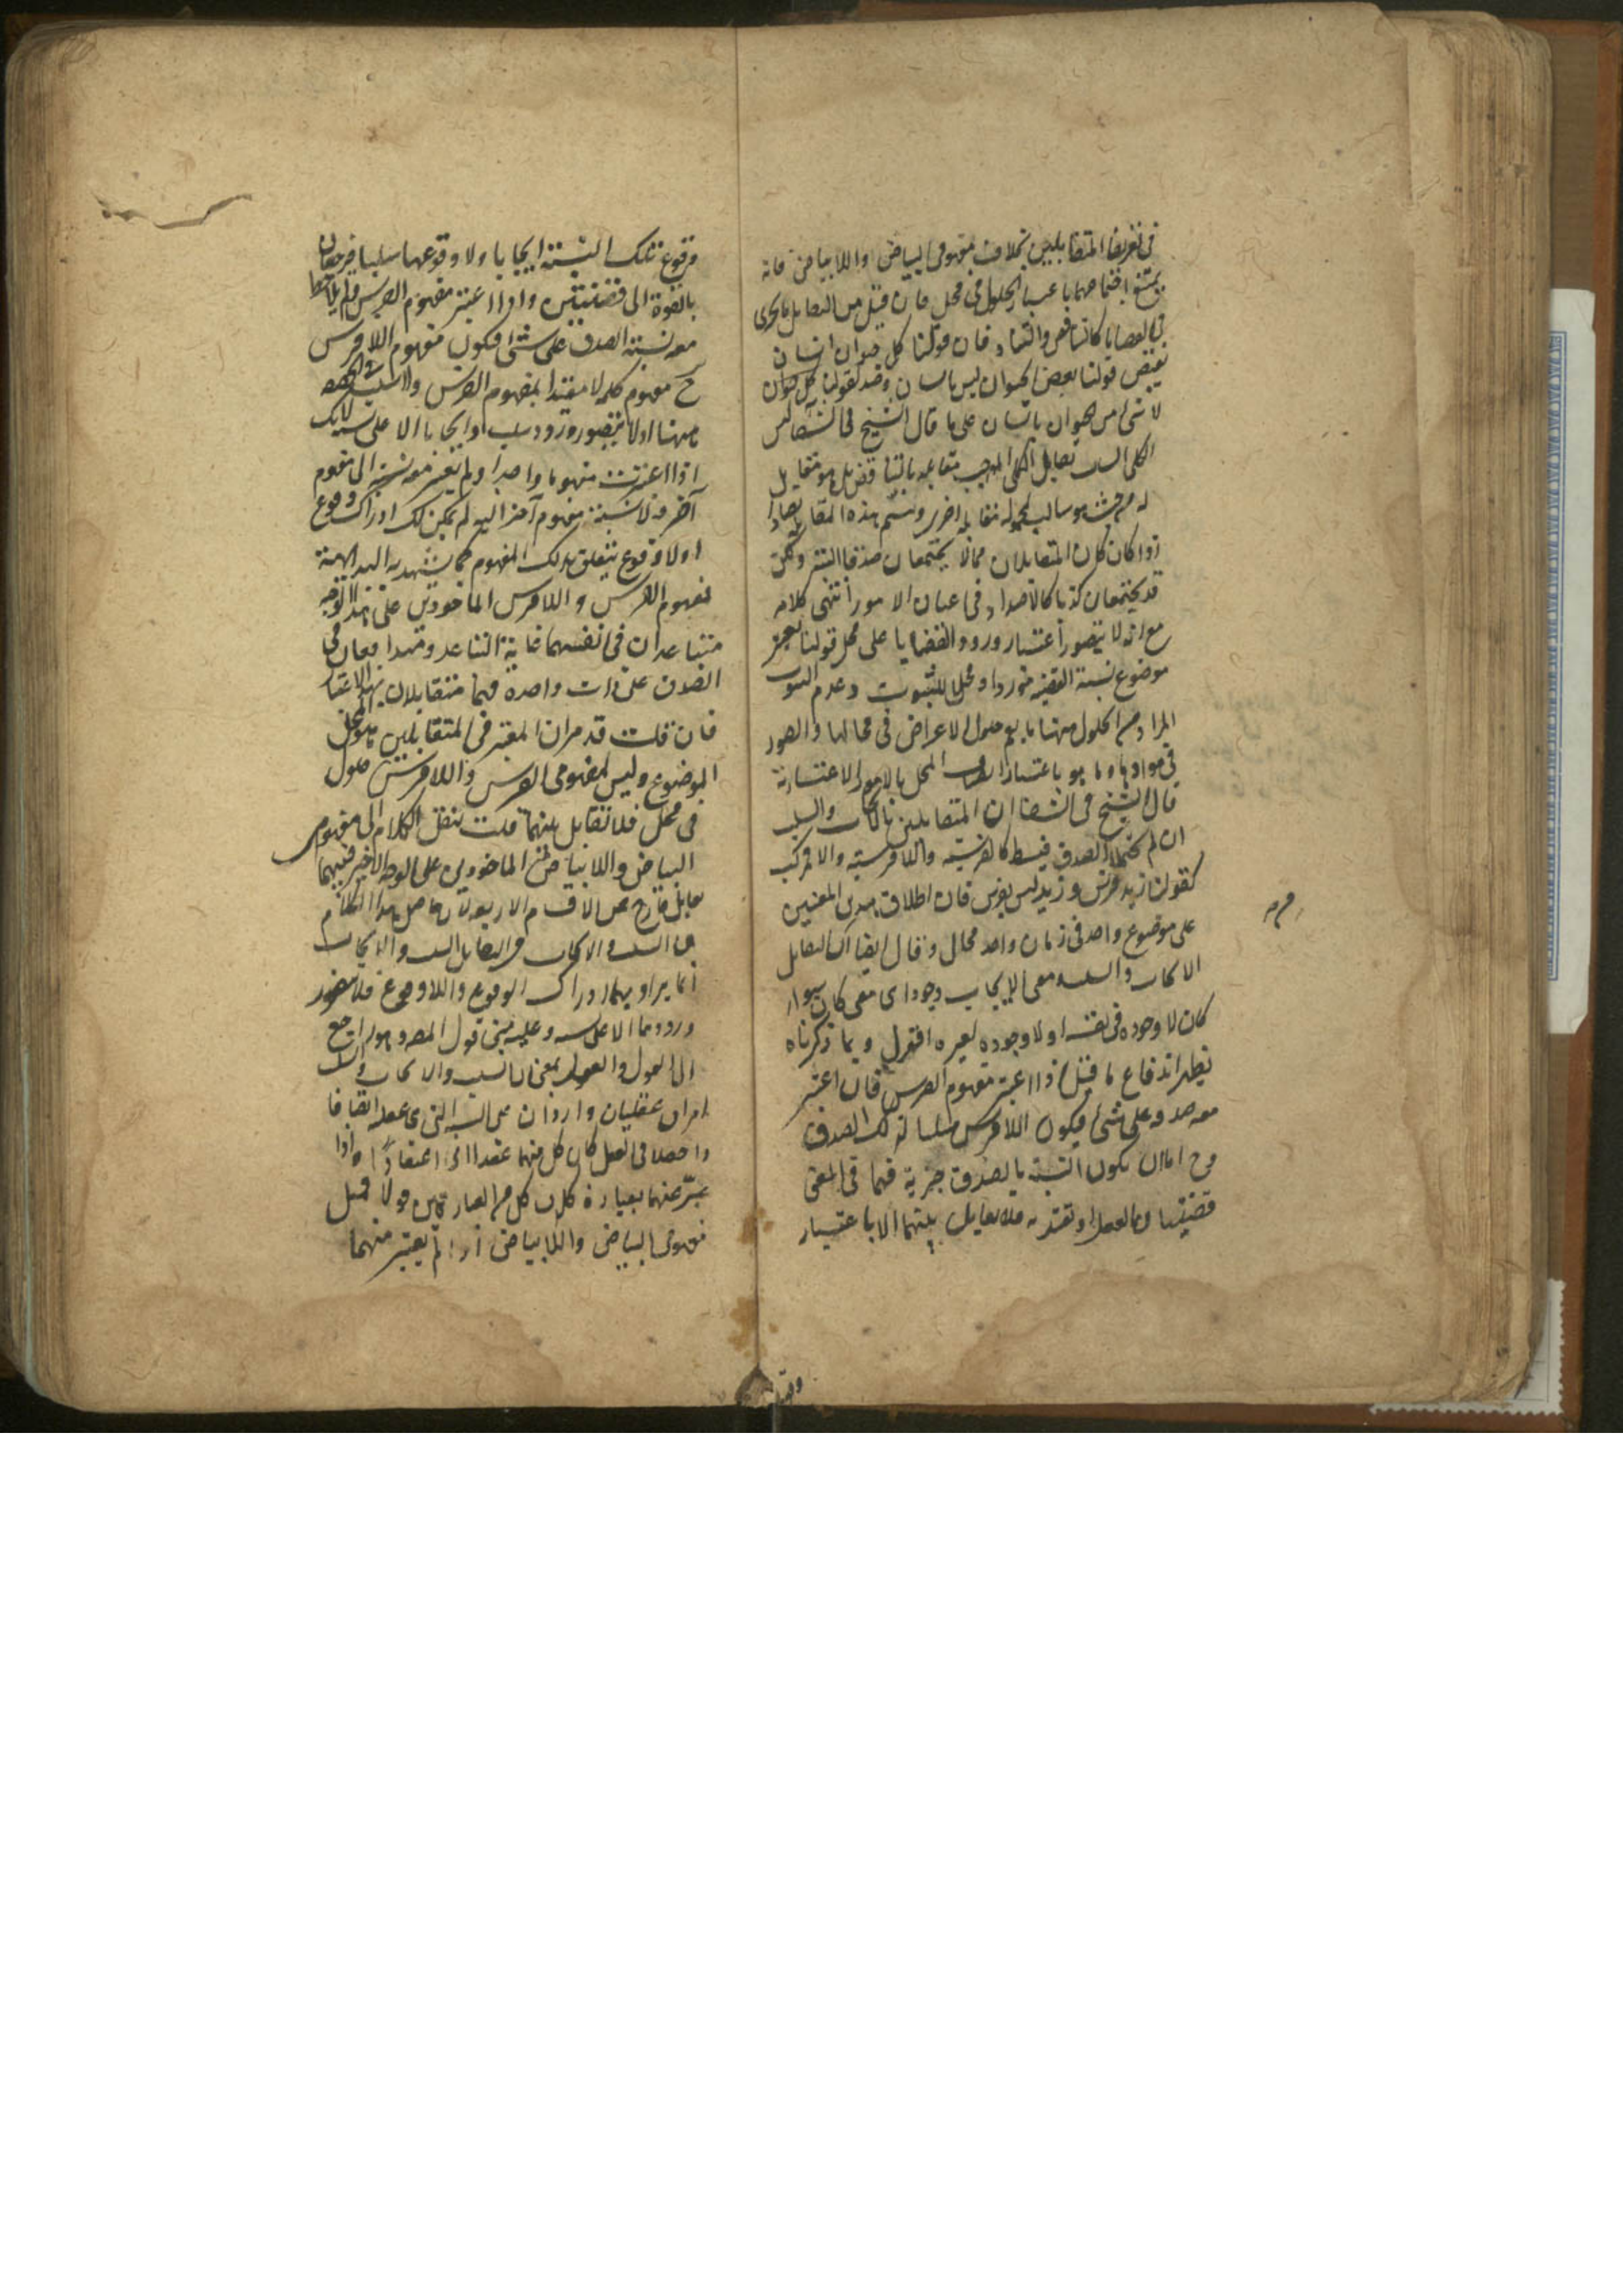 في تعريف المتقابلين بخلاف مفهومي البياض واللابياض فانه
يمتنع اجتماعهما باعتبار الحلول في محل فان قيل من التقابل ما يجري
في القضايا كالتناقض والتضاد فان قولنا كل حيوان انسان
نقيض قولنا بعض الحيوان ليس بانسان وضد لقولنا كل حيوان
لا شي من الحيوان بانسان على ما قال الشيخ في الشفا ليس
الكلي السالب يقابل الكلي الموجب مقابلة بالتناقض بل هو مقابل
له من حيث هو سالب لمحموله مقابلة اخرى ونسم هذه المقابلة تضادا
اذا كان المتقابلان مما لا يجتمعان صدقا البتة ولكن
قد يجتمعان كذبا كالاضداد في اعيان الامور انتهى كلامه
مع انه لا يتصور اعتبار ورود القضايا على محل قولنا يعتبر
موضوع نسبة القضية موردا ومحلا للثبوت وعدم الثبوت
المراد من الحلول ههنا ما يعم حلول الاعراض في محالها والصور
في موادها وما هو باعتبار اتصاف المحل بالامور الاعتبارية
قال الشيخ في الشفا ان المتقابلين بالايجاب والسلب
ان لم يحتملا الصدق فبسيط كالفرسية واللافرسية والا فمركب
كقولنا زيد فرس وزيد ليس بفرس فان اطلاق هذين المعنيين
على موضوع واحد في زمان واحد محال وقال ايضا ان التقابل
الايجاب والسلب معنى الايجاب وجود اى معنى كان سواء
كان لا وجوده في نفسه او لا وجوده لغيره اقول وبما ذكرناه
يظهر اندفاع ما قيل اذا اعتبر مفهوم الفرس فان اعتبر
معه صدقه على شئ فيكون اللافرس سلبا لذلك الصدق
وح اما ان يكون النسبة بالصدق جزئية فهما في المعنى
قضيتان بالفعل او تقديرية فلا تقابل بينهما الا باعتبار
وقوع تلك النسبة ايجابا ولا وقوعها سلبا فيرجعان
بالقوة الى قضيتين واذا اعتبر مفهوم الفرس ولم يلاحظ
معه نسبة الصدق على شئ فيكون مفهوم اللافرس
ح مفهوم كلمة لا مقيدا بمفهوم الفرس ولا سلب في الحقيقة
ههنا اذ لا يتصور ورود سلب او ايجاب الا على نسبة لانك
اذا اعتبرت مفهوما واحدا ولم تعتبر معه نسبة الى مفهوم
آخر ولا نسبة مفهوم آخر اليه لم يمكن لك ادراك وقوع
او لا وقوع يتعلق بذلك المفهوم كما يشهد به البديهة
فمفهوم الفرس واللافرس الماخوذين على هذا الوجه
متباعدان في انفسهما غاية التباعد ومتدافعان في
الصدق على ذات واحدة فهما متقابلان بهذا الاعتبار
فان قلت قد مر ان المعتبر في المتقابلين هو المحل
الموضوع وليس لمفهومي الفرس واللافرس حلول
في محل فلا تقابل بينهما قلت ننقل الكلام الى مفهومي
البياض واللابياض الماخوذين على الوجه الاخير فبينهما
تقابل خارج عن الاقسام الاربعة فان حاصل هذا الكلام
ان السلب والايجاب في التقابل السلب والايجاب
انما يراد بهما ادراك الوقوع واللاوقوع فلا يتصور
ورودهما الا على نسبة وعليه يبنى قول المصر وهو راجع
الى القول والعقد بمعنى ان السلب والايجاب
امران عقليان واردان على النسبة التي
واذا حصلا في العقل كان كل منهما عقدا اى اعتقادا واذا
عبر عنهما بعبارة كان كل من العبارتين قولا قيل
مفهومي البياض واللابياض اذا لم يعتبر منهما